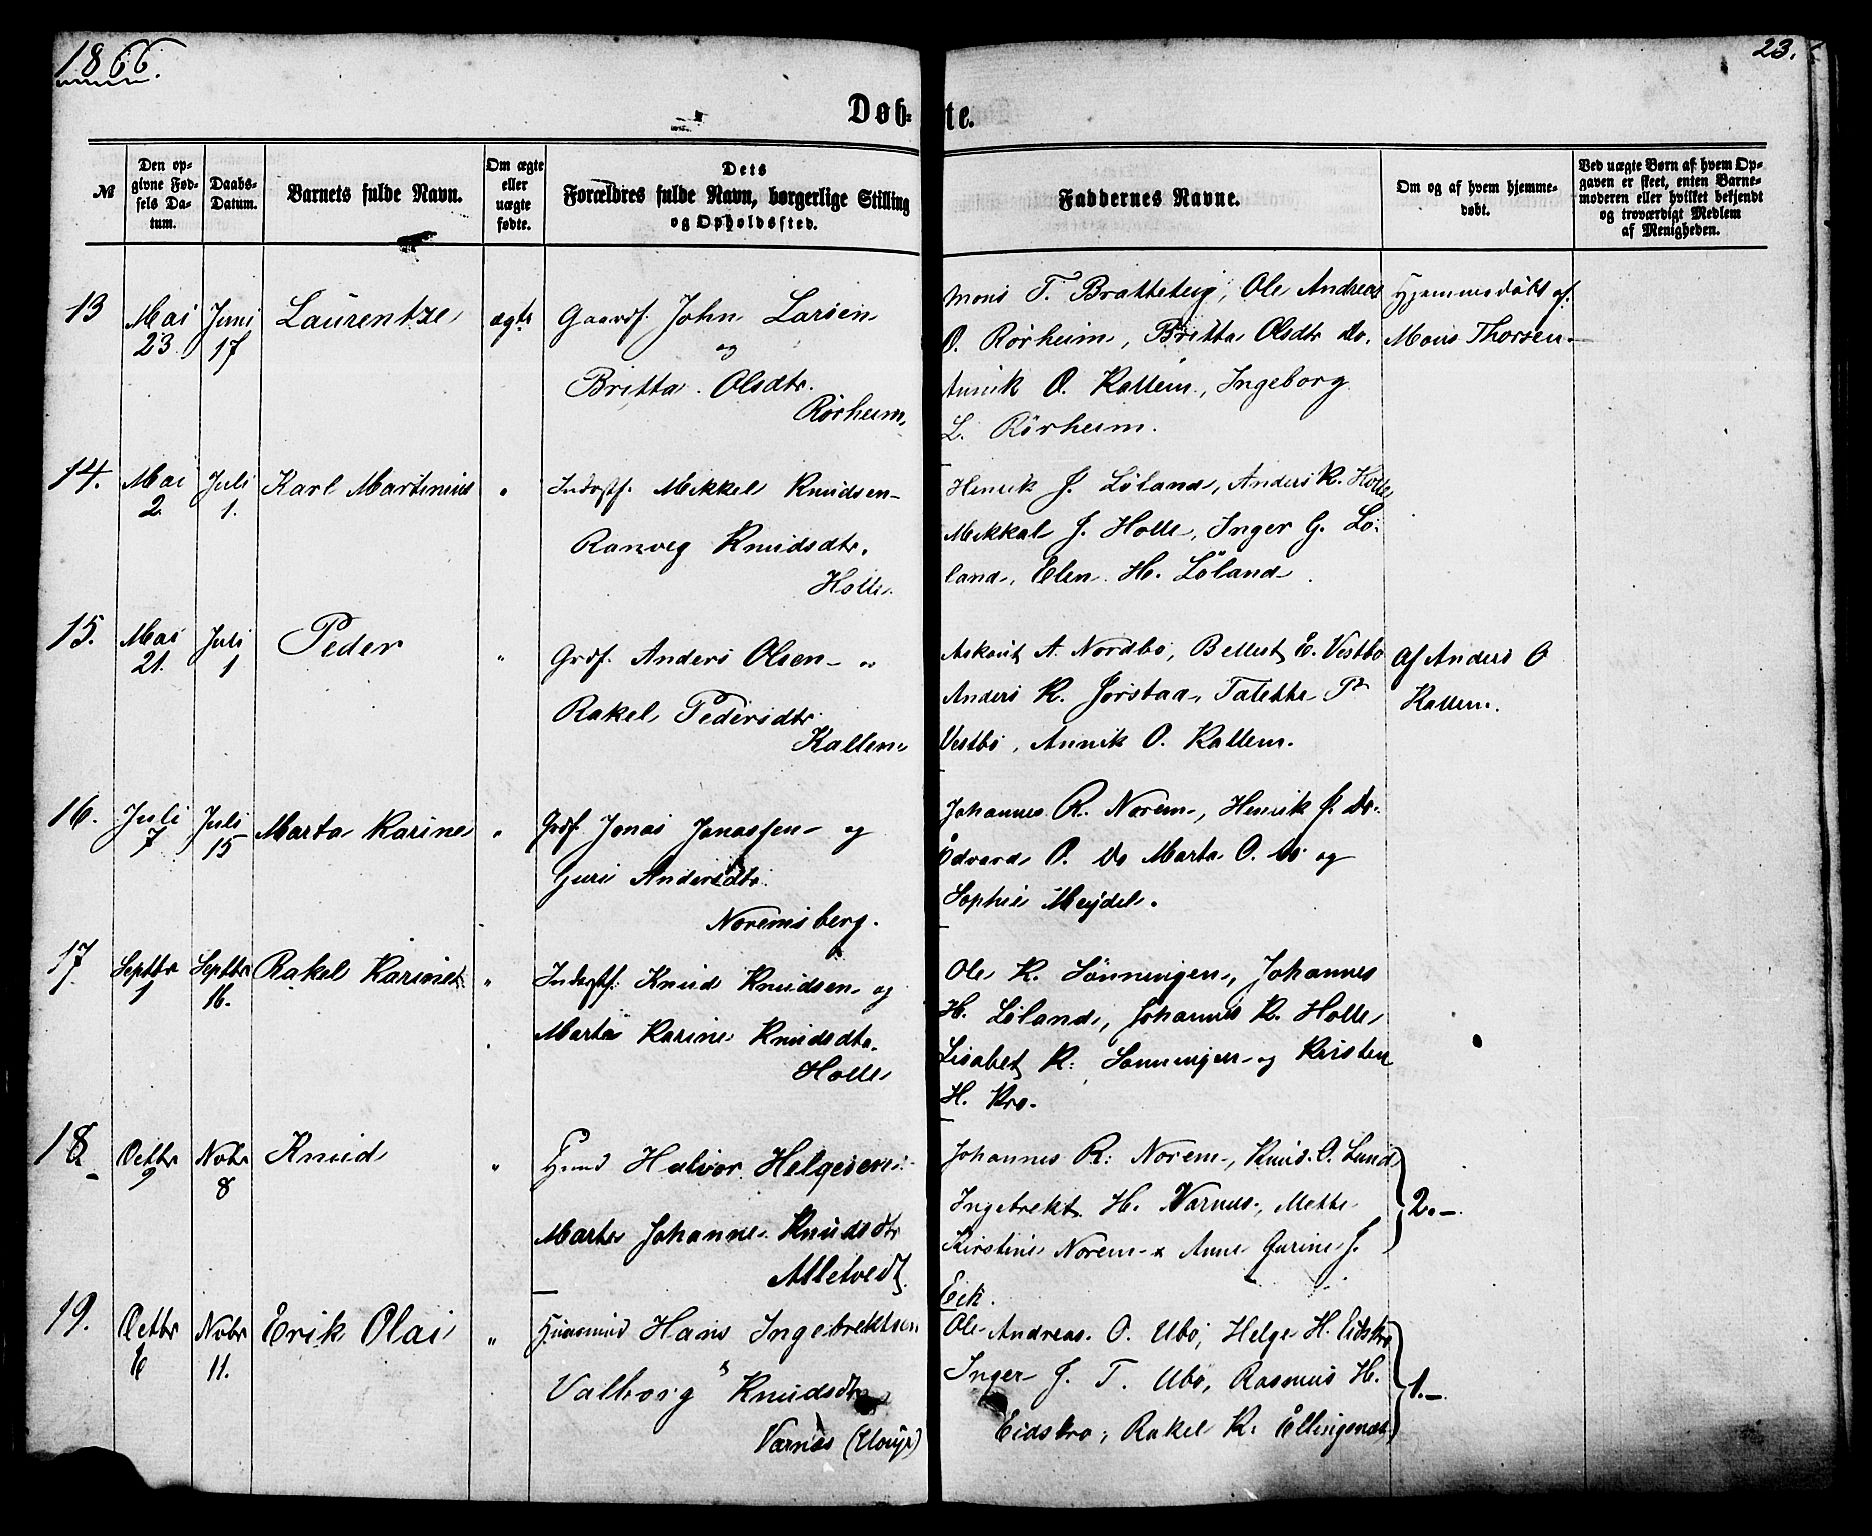 1866.
23.
Døb-te.
№
Den op-
givne Fød-
sels Da-
tum.
Daabs-
Datum.
Barnets fulde Navn.
Om ægte
eller
uægte
fødte.
Dets
Forældres fulde Navn, borgerlige Stilling
og Opholdssted.
Faddernes Navne.
Om og af hvem hjemme-
døbt.
Ved uægte Børn af hvem Op-
gaven er skeet, enten Barne-
moderen eller hvilket bekjendt
og troværdigt Medlem
af Menigheden.
13
Mai
23.
Juni
17
Laurentze
ægte
Gaardf. John Larsen
og
Britta Olsdtr.
Rørheim
Mons T. Bratteteig, Ole Andreas
O. Rørheim, Britta Olsdtr do.
Annik O. Kallem, Ingeborg
L. Rørheim.
Hjemmedøbt af
Mons Thorsen
14.
Mai
2.
Juli
1.
Karl Martinius
"
Inderstf. Mikkel Knudsen
Ranveg Knudsdtr.
Holle
Henrik J. Løland, Anders K. Holle
Mikkal J. Holle, Inger G. Lø-
land, Elen H. Løland.
15.
Mai
21.
Juli
1
Peder
"
Grdf. Anders Olsen
Rakel Pedersdtr
Kallem
Askaut A. Nordbø, Bellest E. Vestbø
Anders K. Jørstad, Talette P
Vestbø, Annik O. Kallem.
Af Anders O
Kallem.
16.
Juli
7
Juli
15
Marta Karine
"
Grdf. Jonas Jonassen og
Guri Andersdtr.
Noremsberg.
Johannes R. Norem, Henrik J. do.
Edvard O. do Marta O. do og
Sophie Meydel.
17.
Septbr
1
Septbr
16.
Rakel Karine
"
Inderstf. Knud Knudsen og
Marta Karine Knudsdtr.
Holle
Ole K. Sønningen, Johannes
H. Løland, Johannes K. Holle
Lisabet K. Sønningen og Kristen
H. Kro.
18
Octbr
9
Nobr
8
Knud
"
Halvor Helgesen
Marte Johanne Knudsdtr
Alletvedt
Johannes R. Norem, Knud O. Lund
Ingebrekt H. Varnes, Mette
Kirstine Norem & Anne Gurine J.
Eik.
2.-
19.
Octbr
6
Nobr
11.
Erik Olai
"
Huusmd Hans Ingebrektsen
Valborg Knudsdtr
Varnes
Ole Andreas O. Ubø, Helge H. Eidskro
Inger J. T. Ubø, Rasmus H.
Eidskro, Rakel K.
1.-